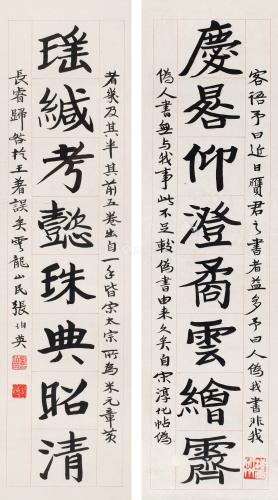 客語予曰近日贗君之書者益多予曰人偽我書非我
慶晷仰澄矞雲繪霽
偽人書無与我事此不足 偽書由來久矣自宋淳化帖偽
者幾及其半其前五卷出自一手皆宋太宗所為米元章黃
瑤緘考懿珠典昭清
長睿歸咎於王著誤矣雲龍山民張伯英